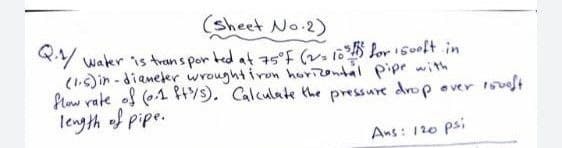 (Sheet No.2)
Q.1/ Water is transported at 75°F for 1500ft in
(1.5)in-diameter wrought iron horizontal pipe with
flow rate of (0.1 ft³/s). Calculate the pressure drop over 1500ft
length of pipe.
Ans: 120 psi